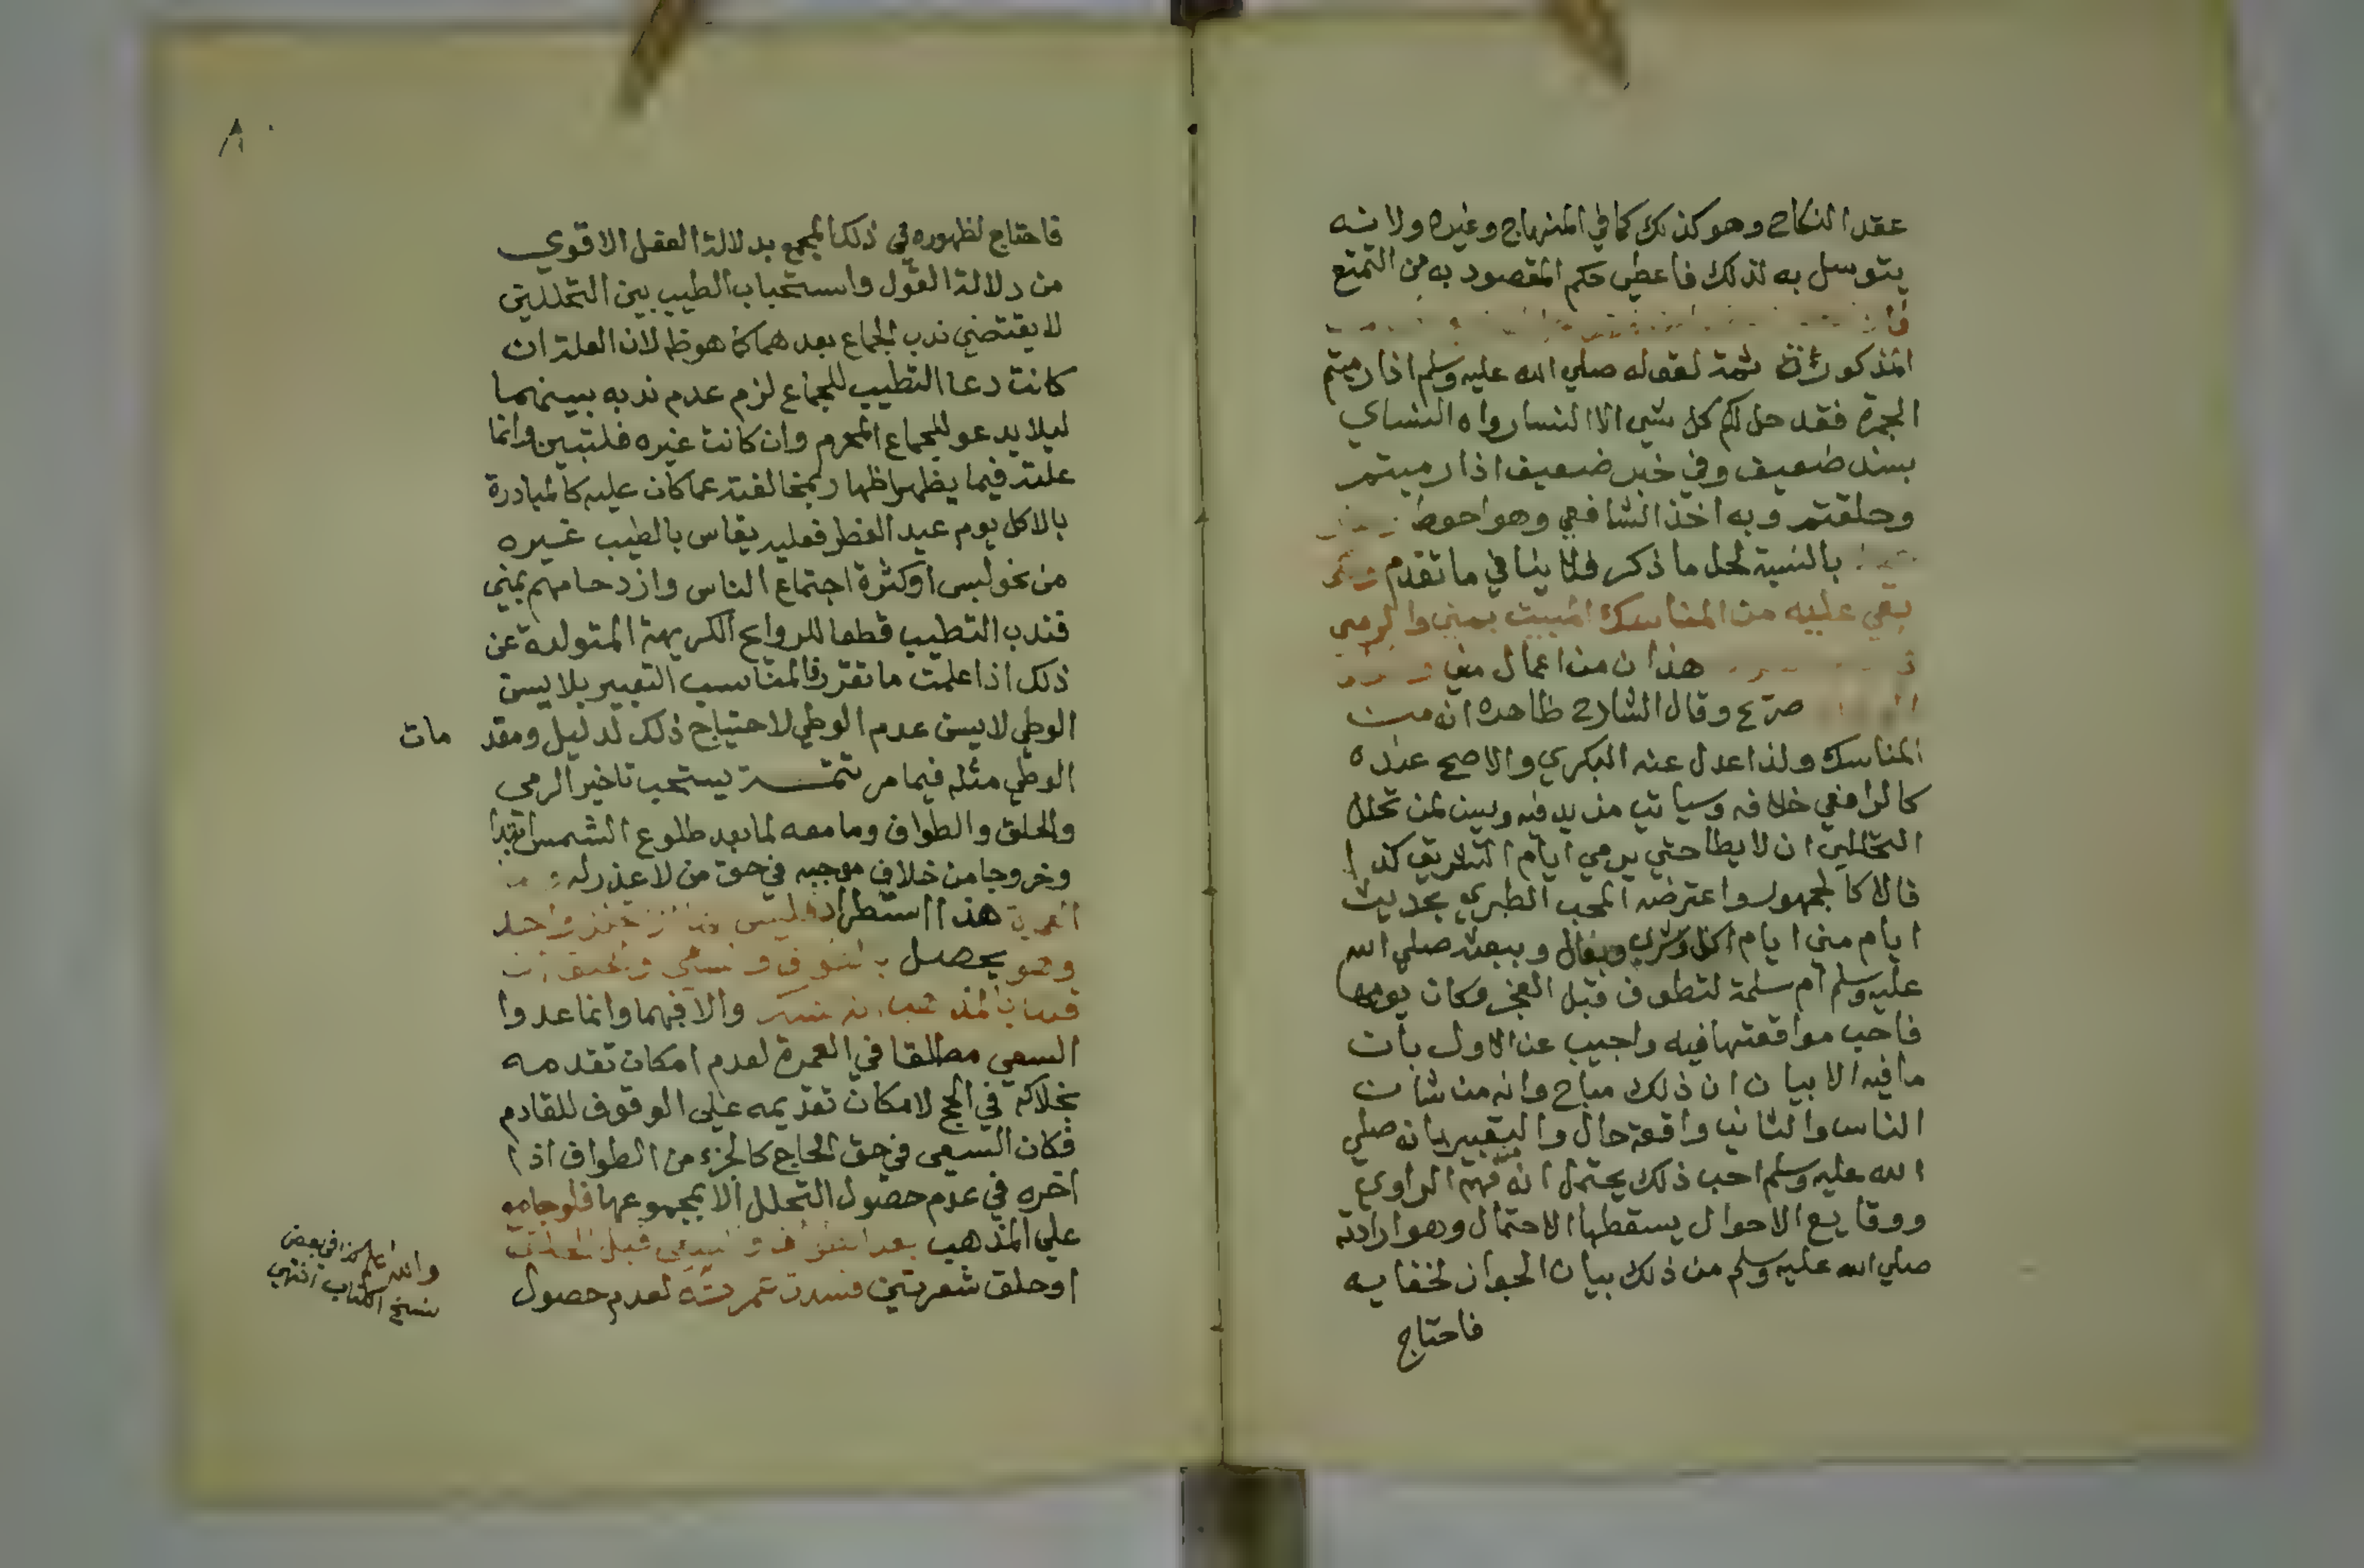 عقد النكاح وهو كذلك كما في المنهاج وغيره ولانه
يتوسل به لذلك فاعطي حكم المقصود به من التمتع
المذكور ثمة لقوله صلي الله عليه وسلم اذا رميتم
الجمرة فقد حل لكم كل شي الا النسا رواه النساي
بسند ضعيف وفي خبر ضعيف اذا رميتم
وحلقتم وبه اخذ الشافعي وهو احوط
بالنسبة لحل ما ذكر فلا ينافي ما تقدم
بقي عليه من المناسك المبيت بمني والرمي
هذان من اعمال مني
صرح وقال الشارح ظاهره انه من
المناسك ولذا عدل عنه البكري والاصح عنده
كالرافعي خلافه وسياتي مزيد فيه ويسن لمن تحلل
التحللين ان لا يطا حتي يرمي ايام التشريق كذا
قالا كالجمهور واعترضه المحب الطبري بحديث
ايام مني ايام اكل وشرب وبعال وببعثه صلي الله
عليه وسلم ام سلمة لتطوف قبل الفجر وكان يومها
فاحب مواقعتها فيه واجيب عن الاول بان
ما فيه الا بيان ان ذلك مباح وانه من شان
الناس والثاني واقعة حال والتعبير بانه صلي
الله عليه وسلم احب ذلك يحتمل انه فهم الراوي
ووقايع الاحوال يسقطها الاحتمال وهو ارادته
صلي الله عليه وسلم من ذلك بيان الجواز لخفايه
فاحتاج
فاحتاج لظهوره في ذلك المجمع بدلالة الفعل الاقوي
من دلالة القول واستحباب الطيب بين التحللين
لا يقتضي ندب الجماع بعدهما كما هو ظ لان العلة ان
كانت دعا التطيب للجماع لزم عدم ندبه بينهما
ليلا يدعو للجماع المحرم وان كانت غيره فلتبين وانما
علته فيما يظهر اظهار لمخالفته عما كان عليه كالمبادرة
بالاكل يوم عيد الفطر فعليه يقاس بالطيب غيره
من نحو لبس او كثرة اجتماع الناس وازدحامهم بمني
فندب التطيب قطعا للروايح الكريهة المتولدة عن
ذلك اذا علمت ما تقرر فالمناسب التعبير بلا يسن
الوطي لا يسن عدم الوطي لاحتياج ذلك لدليل ومقد مات
الوطي مثله فيما مر تتمة يستحب تاخير الرمي
والحلق والطواف وما معه لما بعد طلوع الشمس اقتدا
وخروجا من خلاف موجبه في حق من لا عذر له
العمرة هذا استطراد فليس واحد
وهو يحصل
والا فهما وانما عدوا
السعي مطلقا في العمرة لعدم امكان تقدمه
بخلافه في الحج لامكان تقديمه علي الوقوف للقادم
فكان السعي في حق الحاج كالجزء من الطواف اذا
اخره في عدم حصول التحلل الا بمجموعها فلو جامع
علي المذهب بعد الطواف و قبل الحلق
او حلق شعرتين فسدت عمرته لعدم حصول
والله اعلم كذا في بعض
نسخ الكتاب انتهي